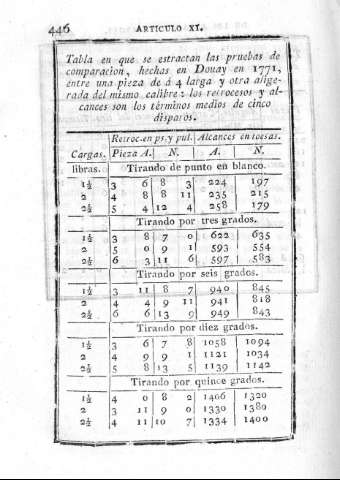 446 ARTICULO XI.
Tabla en que se estractan las pruebas de
comparacion, hechas en Douay en 1771,
entre una pieza de á 4 larga y otra alige-
rada del mismo calibre: los retrocesos y al-
cances son los términos medios de cinco
disparos.
Retroc. en ps. y pul. Alcances en toesas.
Cargas. Pieza A. N. A. N.
libras. Tirando de punto en blanco.
1½ 3 6 8 3 224 197
2 4 8 8 11 235 215
2½ 5 4 12 4 258 179
Tirando por tres grados.
1½ 3 8 7 0 622 635
2 5 0 9 1 593 554
2½ 6 3 11 6 597 583
Tirando por seis grados.
1½ 3 11 8 7 940 845
2 4 4 9 11 941 818
2½ 6 6 13 9 949 843
Tirando por diez grados.
1½ 3 6 7 8 1058 1094
2 4 9 9 1 1121 1034
2½ 5 8 13 5 1139 1142
Tirando por quince grados.
1½ 4 0 8 2 1406 1320
2 3 11 9 0 1330 1380
2½ 4 11 10 7 1334 1400